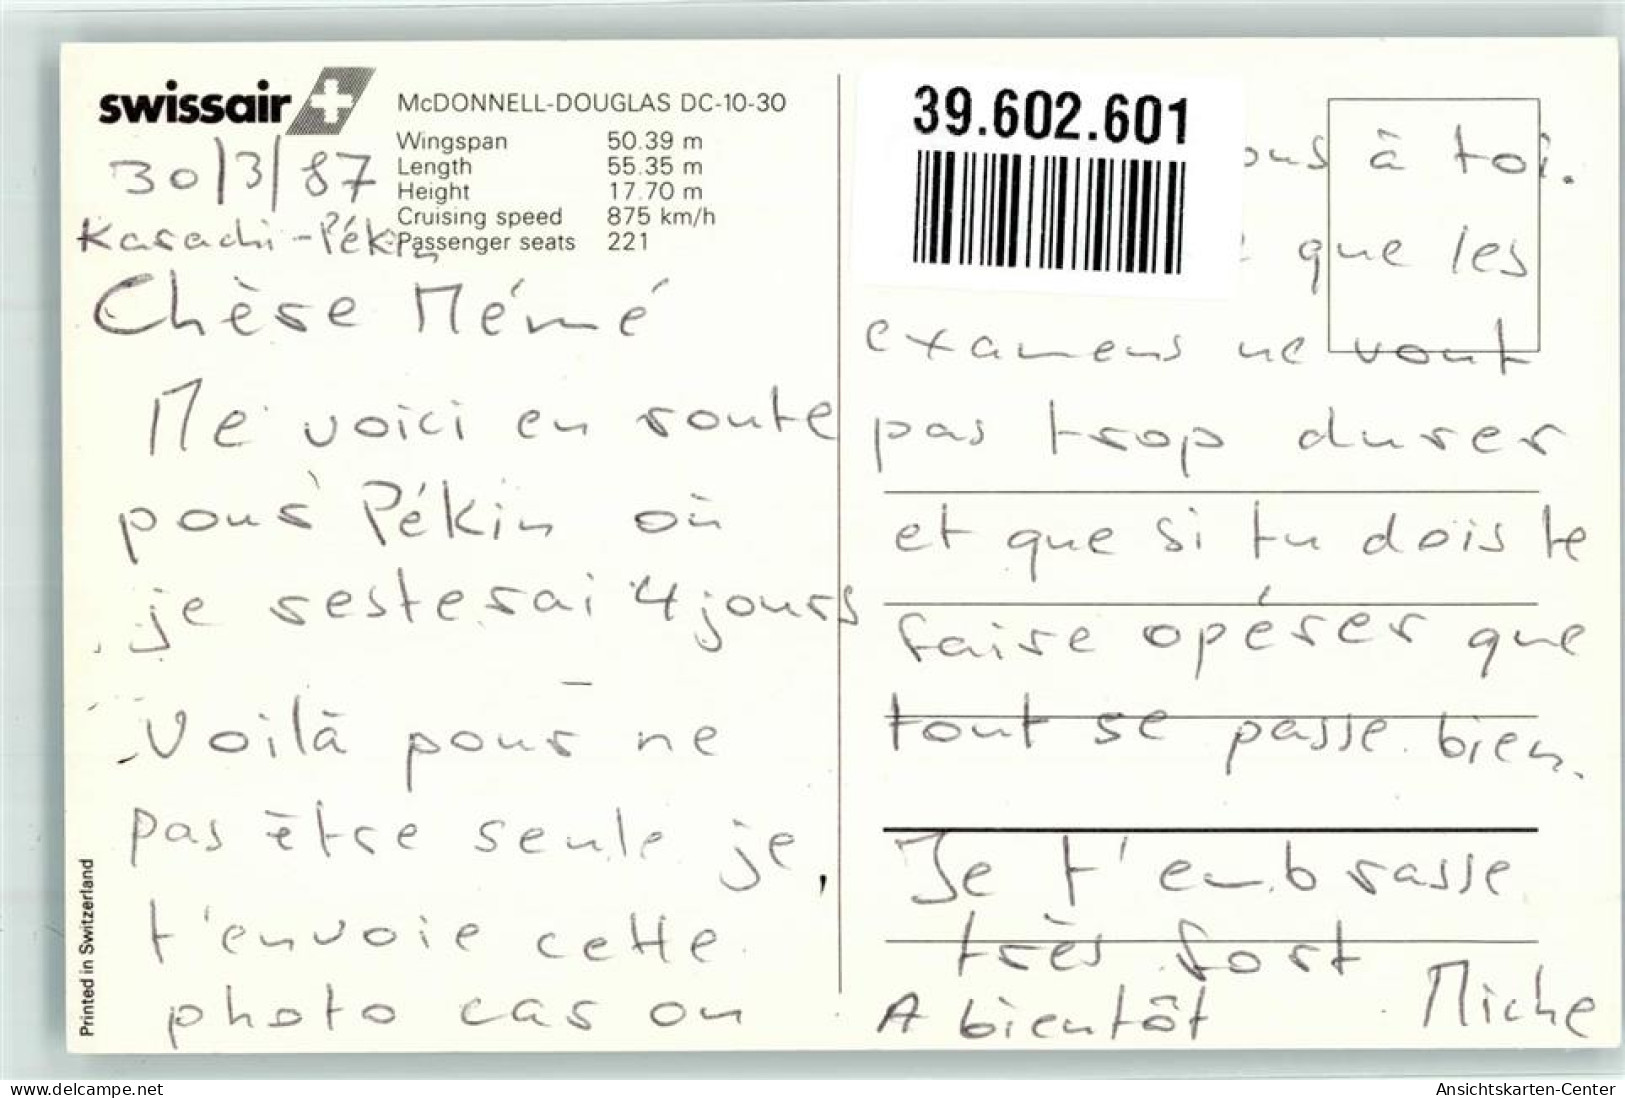 swissair
McDONNELL-DOUGLAS DC-10-30
Wingspan 50.39 m
Length 55.35 m
Height 17.70 m
Cruising speed 875 km/h
Passenger seats 221
30/3/87
Karachi-Pékin
Chère Mémé
Me voici en route
pour Pékin où
je resterai 4 jours
Voilà pour ne
pas être seule je
t'envoie cette
photo car on
39.602.601
à toi.
que les
examens ne vont
pas trop durer
et que si tu dois te
faire opérer que
tout se passe bien.
Je t'embrasse
très fort
A bientôt Miche
Printed in Switzerland
delcampe.net
Ansichtskarten-Center